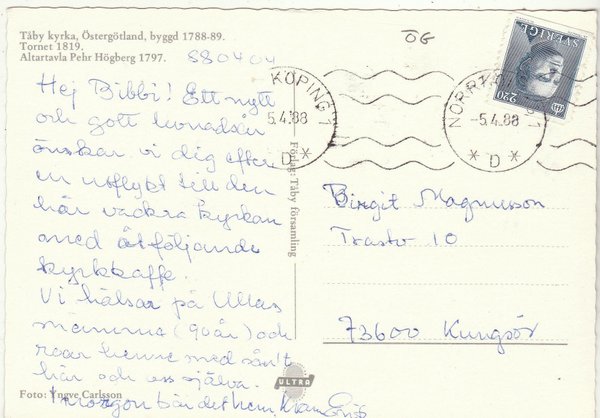 Täby kyrka, Östergötland, byggd 1788-89.
Tornet 1819.
Altartavla Pehr Högberg 1797.
880404
ÖG
Hej Bibbi! Ett nytt
och gott levnadsår
önskar vi dig efter
en utflykt till den
här vackra kyrkan
med åtföljande
kyrkkaffe.
Vi hälsar på Ullas
mamma (90 år) och
roar henne med sån't
här och oss själva.
I morgon bär det hem, Kram
Foto: Yngve Carlsson
Förlag: Täby församling
ULTRA
KÖPING 1
5.4.88
D
NORRKÖPING 1
-5.4.88
D
SVERIGE
220
Birgit Magnusson
Trastv 10
73600 Kungsör